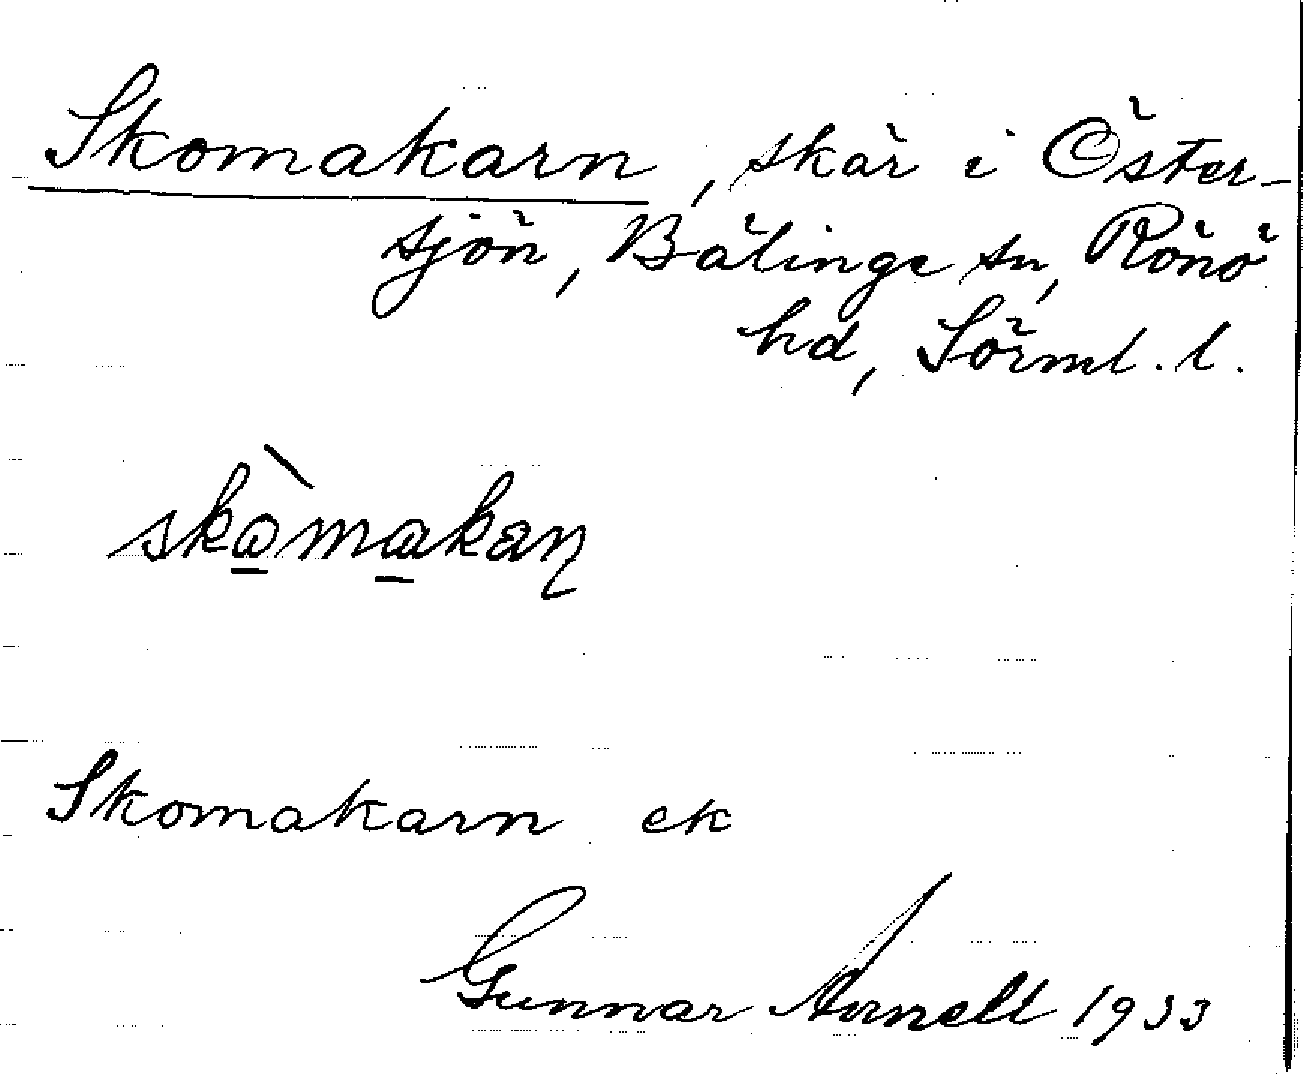 Skomakarn, skär i Öster-
sjön, Bälinge sn, Rönö
hd, Sörml. l.
skòmakaɳ
Skomakarn ek
Gunnar Arnell 1933